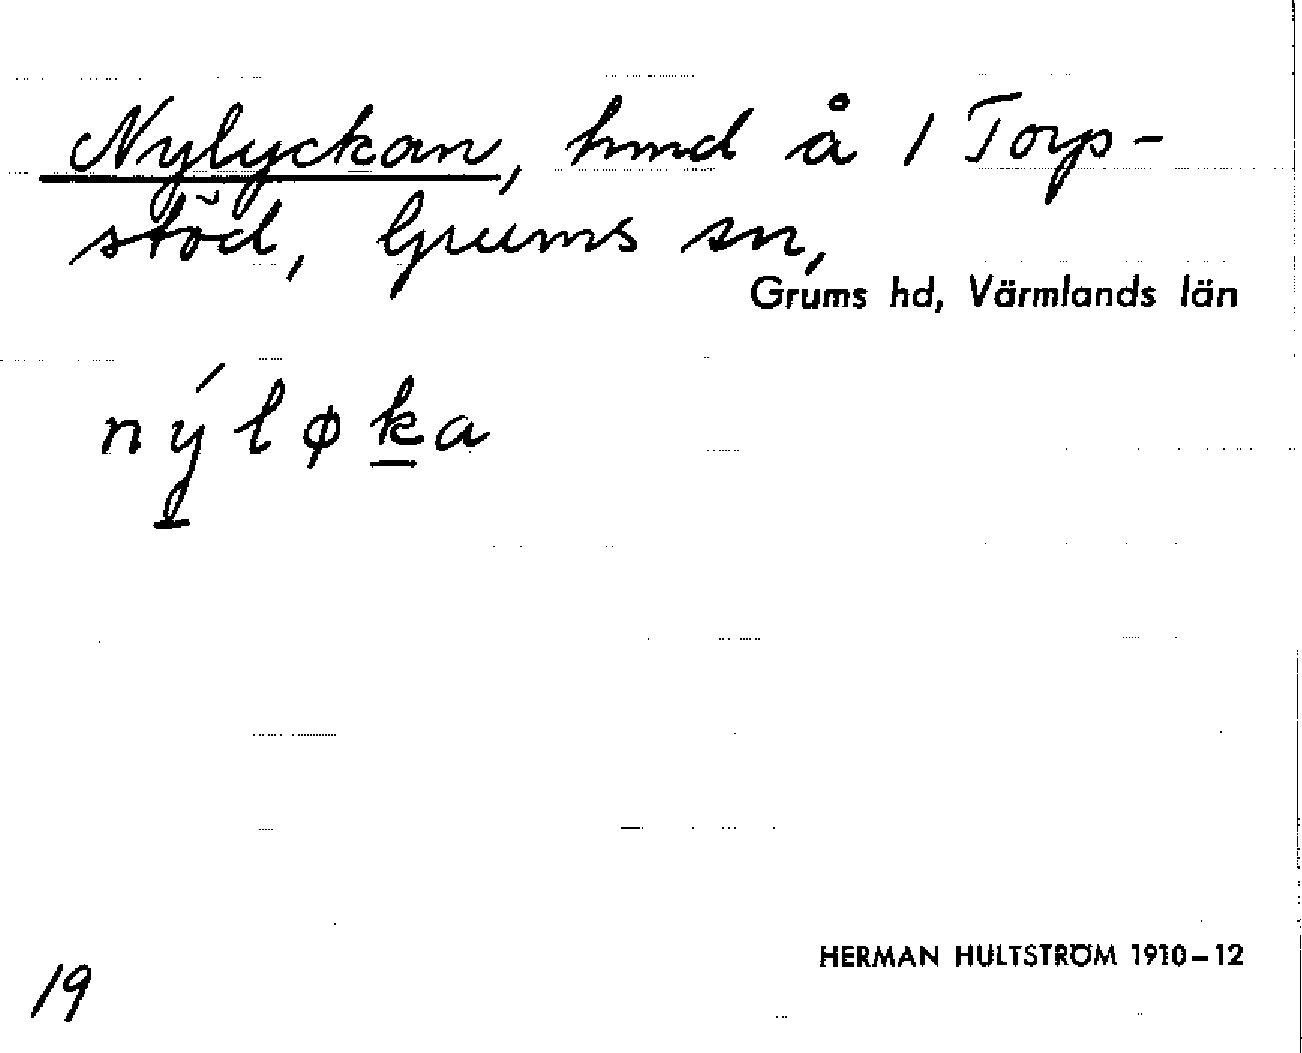 Nylyckan, hmd å 1 Torp-
stöd, Grums sn,
Grums hd, Värmlands län
nýløka
HERMAN HULTSTRÖM 1910–12
19